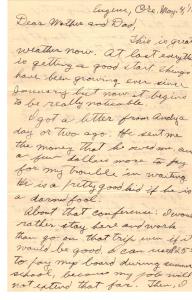 Eugene, Ore, May, 4,
Dear Mother and Dad,
This is great
weather now. At last everything
is getting a good start. Things
have been growing ever since
January but now it begins
to be really noticeable.
I got a letter from Andy a
day or two ago. He sent me
the money that he owed me and
a few dollars more to pay
for my trouble in waiting.
He is a pretty good kid if he is
a darn fool.
About that conference: I would
rather stay here and work
than go on that trip even if it
would be good. I can
to pay my board during summer
school, because my job will
not extend that far. Then, I